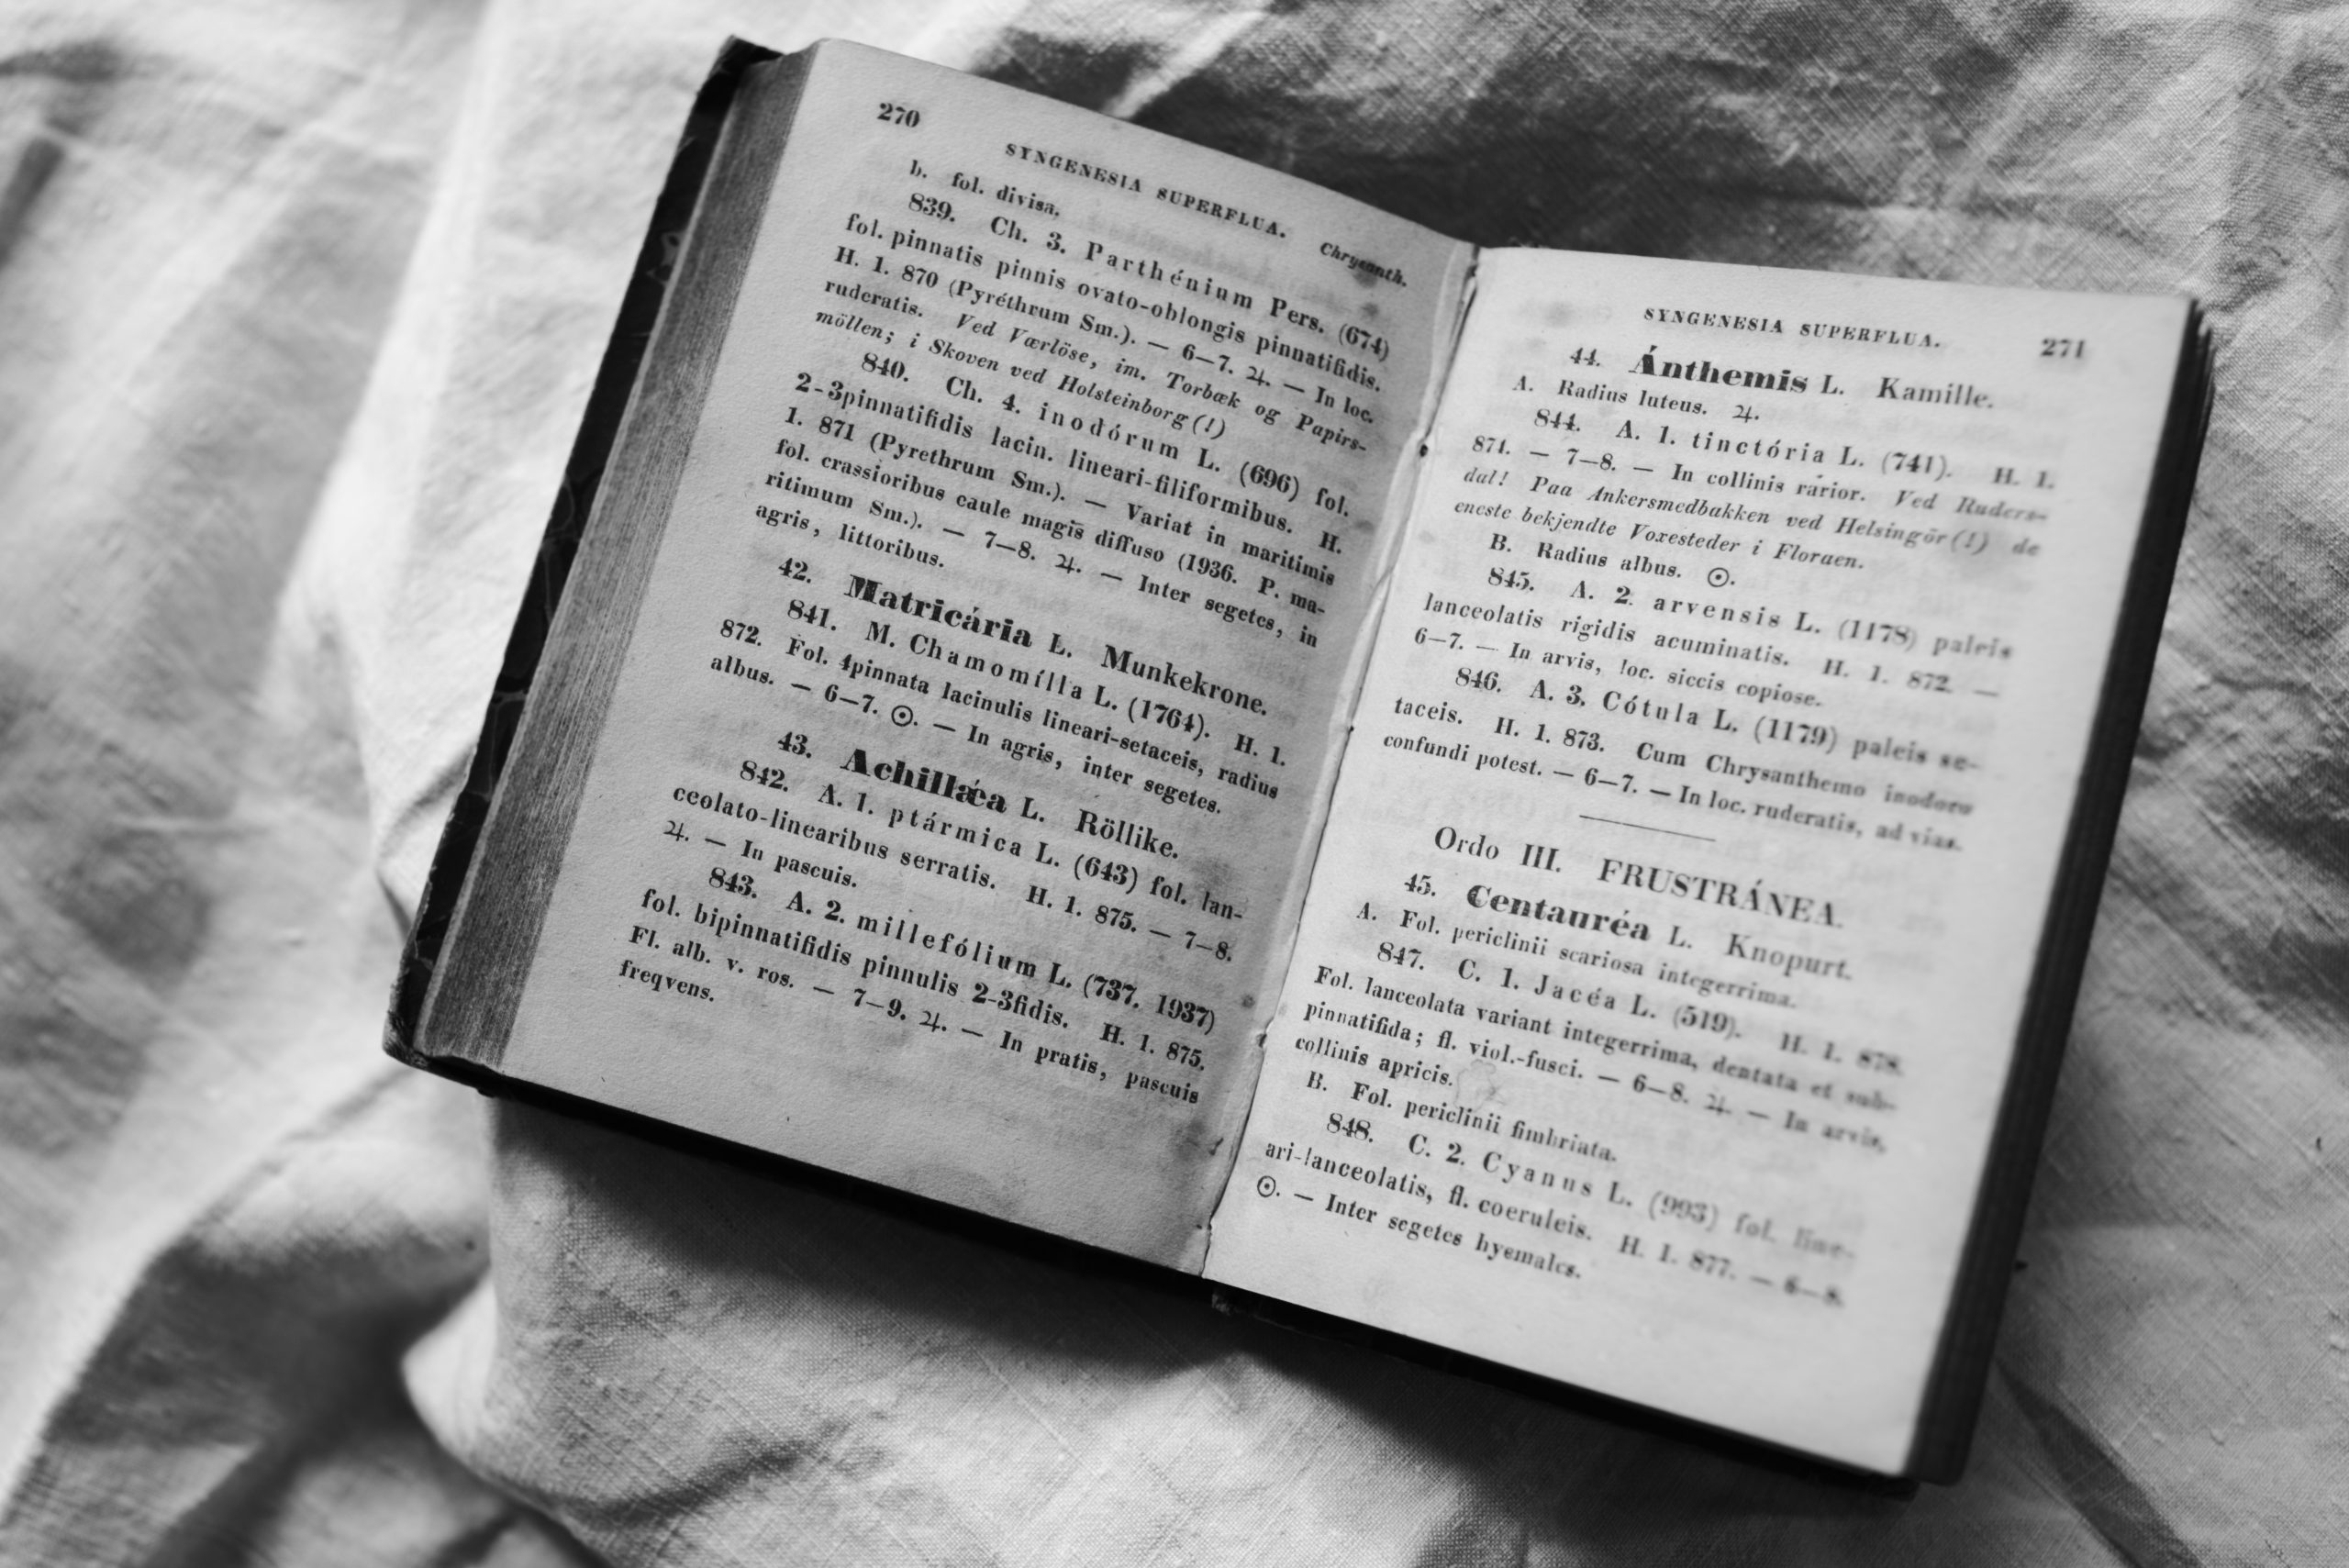 270
SYNGENESIA SUPERFLUA. Chrysanth.
b. fol. divisa.
839. Ch. 3. Parthénium Pers. (674)
fol. pinnatis pinnis ovato-oblongis pinnatifidis.
H. 1. 870 (Pyréthrum Sm.). — 6—7. ♃. — In loc.
ruderatis. Ved Værlöse, im. Torbæk og Papirs-
möllen; i Skoven ved Holsteinborg (!)
840. Ch. 4. inodórum L. (696) fol.
2-3pinnatifidis lacin. lineari-filiformibus. H.
1. 871 (Pyrethrum Sm.). — Variat in maritimis
fol. crassioribus caule magis diffuso (1936. P. ma-
ritimum Sm.). — 7—8. ♃. — Inter segetes, in
agris, littoribus.
42. Matricária L. Munkekrone.
841. M. Chamomílla L. (1764). H. 1.
872. Fol. 4pinnata lacinulis lineari-setaceis, radius
albus. — 6—7. ☉. — In agris, inter segetes.
43. Achillǽa L. Röllike.
842. A. 1. ptármica L. (643) fol. lan-
ceolato-linearibus serratis. H. 1. 875. — 7—8.
♃. — In pascuis.
843. A. 2. millefólium L. (737. 1937)
fol. bipinnatifidis pinnulis 2-3fidis. H. 1. 875.
Fl. alb. v. ros. — 7—9. ♃. — In pratis, pascuis
freqvens.
SYNGENESIA SUPERFLUA. 271
44. Ánthemis L. Kamille.
A. Radius luteus. ♃.
844. A. 1. tinctória L. (741). H. 1.
874. — 7—8. — In collinis rarior. Ved Ruders-
dal! Paa Ankersmedbakken ved Helsingör (!) de
eneste bekjendte Voxesteder i Floraen.
B. Radius albus. ☉.
845. A. 2. arvensis L. (1178) paleis
lanceolatis rigidis acuminatis. H. 1. 872. —
6—7. — In arvis, loc. siccis copiose.
846. A. 3. Cótula L. (1179) paleis se-
taceis. H. 1. 873. Cum Chrysanthemo inodoro
confundi potest. — 6—7. — In loc. ruderatis, ad vias.
Ordo III. FRUSTRÁNEA.
45. Centauréa L. Knopurt.
A. Fol. periclinii scariosa integerrima.
847. C. 1. Jacéa L. (519). H. 1. 878.
Fol. lanceolata variant integerrima, dentata et sub-
pinnatifida; fl. viol.-fusci. — 6—8. ♃. — In arvis,
collinis apricis.
B. Fol. periclinii fimbriata.
848. C. 2. Cyanus L. (993) fol. line-
ari-lanceolatis, fl. coeruleis. H. 1. 877. — 6—8.
☉. — Inter segetes hyemales.